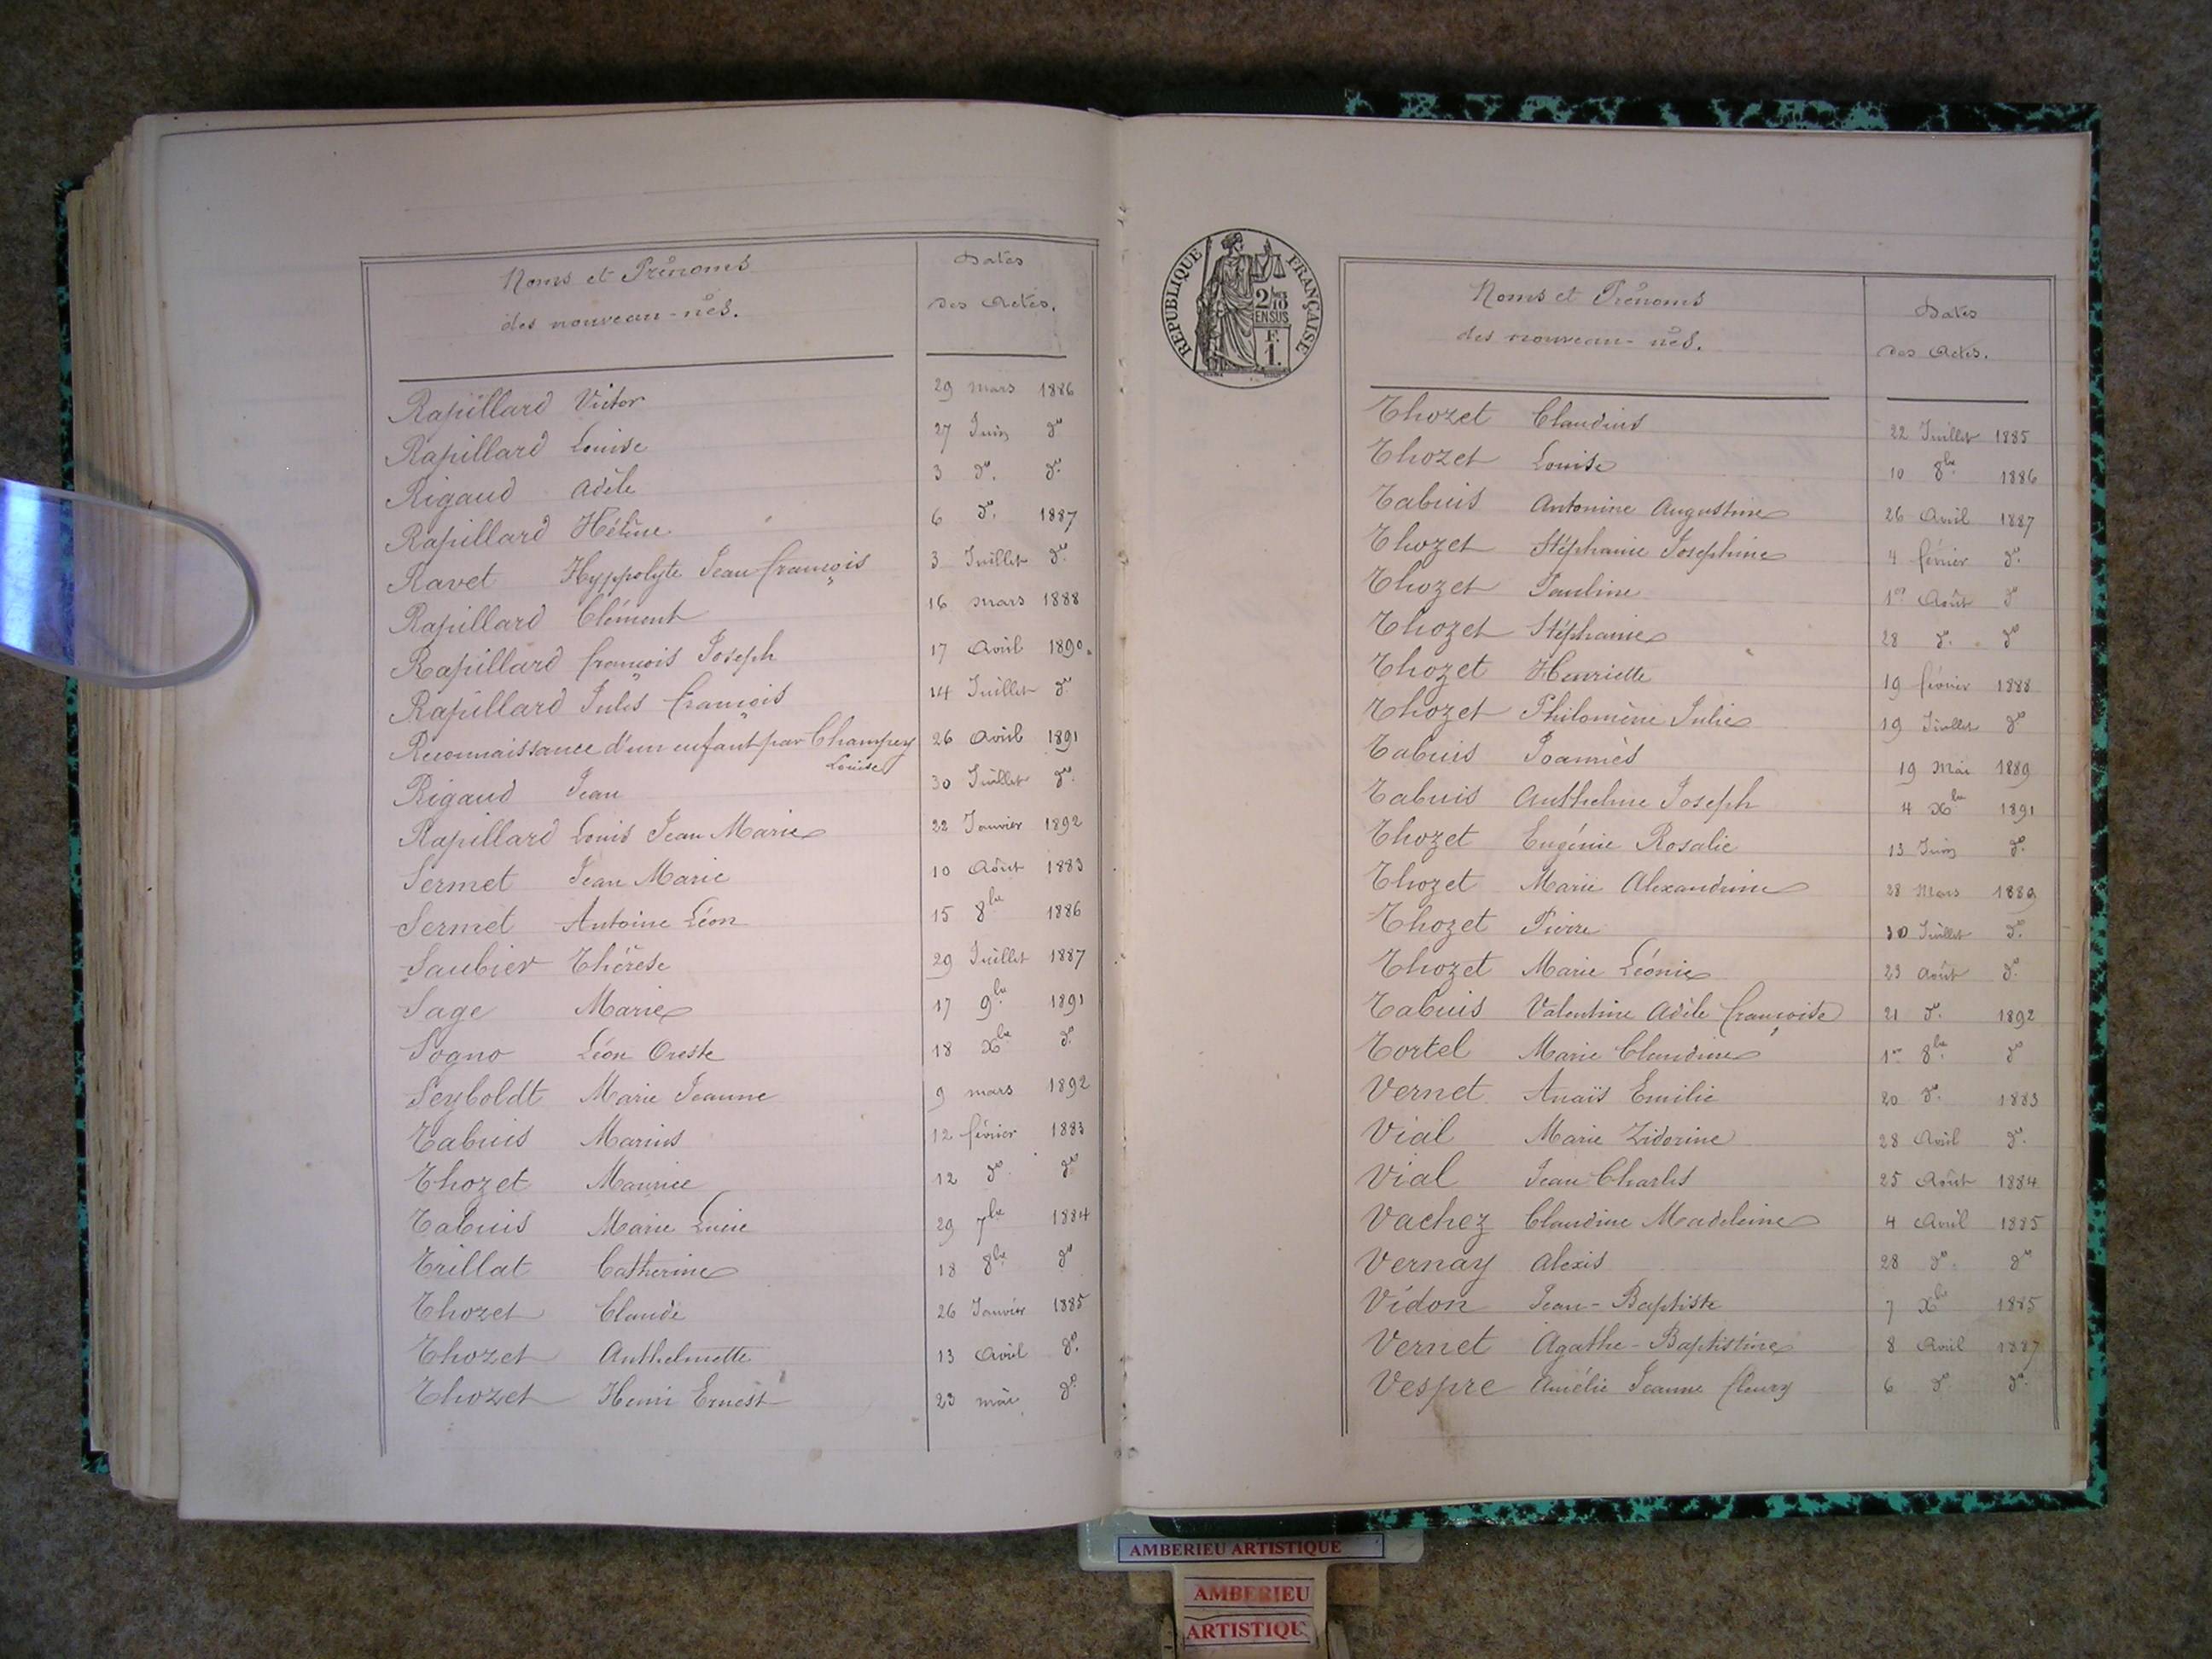 Noms et Prénoms
des nouveau-nés.
Dates
des Actes.
Rapillard Victor 29 mars 1886
Rapillard Louise 27 Juin do
Rigaud Adèle 3 do. do.
Rapillard Hélène 6 do. 1887
Ravet Hyppolyte Jean François 3 Juillet do.
Rapillard Clément 16 mars 1888
Rapillard François Joseph 17 Avril 1890.
Rapillard Jules François 14 Juillet do.
Reconnaissance d'un enfant par Champey 26 Avril 1891
Louise
Rigaud Jean 30 Juillet do.
Rapillard Louis Jean Marie 22 Janvier 1892
Sermet Jean Marie 10 Août 1883
Sermet Antoine Léon 15 8bre 1886
Saubier Thérèse 29 Juillet 1887
Sage Marie 17 9bre 1891
Sogno Léon Oreste 18 Xbre do.
Seyboldt Marie Jeanne 9 mars 1892
Tabuis Marius 12 février 1883
Thozet Maurice 12 do. do
Tabuis Marie Lucie 29 7bre 1884
Trillat Catherine 18 8bre do
Thozet Claude 26 Janvier 1885
Thozet Anthelmette 13 Avril do.
Thozet Henri Ernest 23 mai do.
RÉPUBLIQUE FRANÇAISE
2/10
EN SUS
F.
1.
Noms et Prénoms
des nouveau-nés.
Dates
des Actes.
Thozet Claudius 22 Juillet 1885
Thozet Louise 10 8bre 1886
Tabuis Antonine Augustine 26 Avril 1887
Thozet Stéphanie Josephine 4 février do.
Thozet Pauline 1er Août do
Thozet Stéphanie 28 do. do
Thozet Henriette 19 février 1888
Thozet Philomène Julie 19 Juillet do
Tabuis Joannès 19 Mai 1889
Tabuis Anthelme Joseph 4 Xbre 1891
Thozet Eugénie Rosalie 13 Juin do.
Thozet Marie Alexandrine 28 Mars 1889
Thozet Pierre 30 Juillet do.
Thozet Marie Léonie 23 Août do.
Tabuis Valentine Adèle Françoise 21 do. 1892
Tortel Marie Claudine 1er 8bre do
Vernet Anaïs Emilie 20 do. 1883
Vial Marie Zidorine 28 Avril do.
Vial Jean Charles 25 Août 1884
Vachez Claudine Madeleine 4 Avril 1885
Vernay Alexis 28 do. do
Vidon Jean-Baptiste 7 Xbre 1885
Vernet Agathe-Baptistine 8 Avril 1887
Vespre Amélie Jeanne fleury 6 do do.
AMBERIEU ARTISTIQUE
AMBERIEU
ARTISTIQU